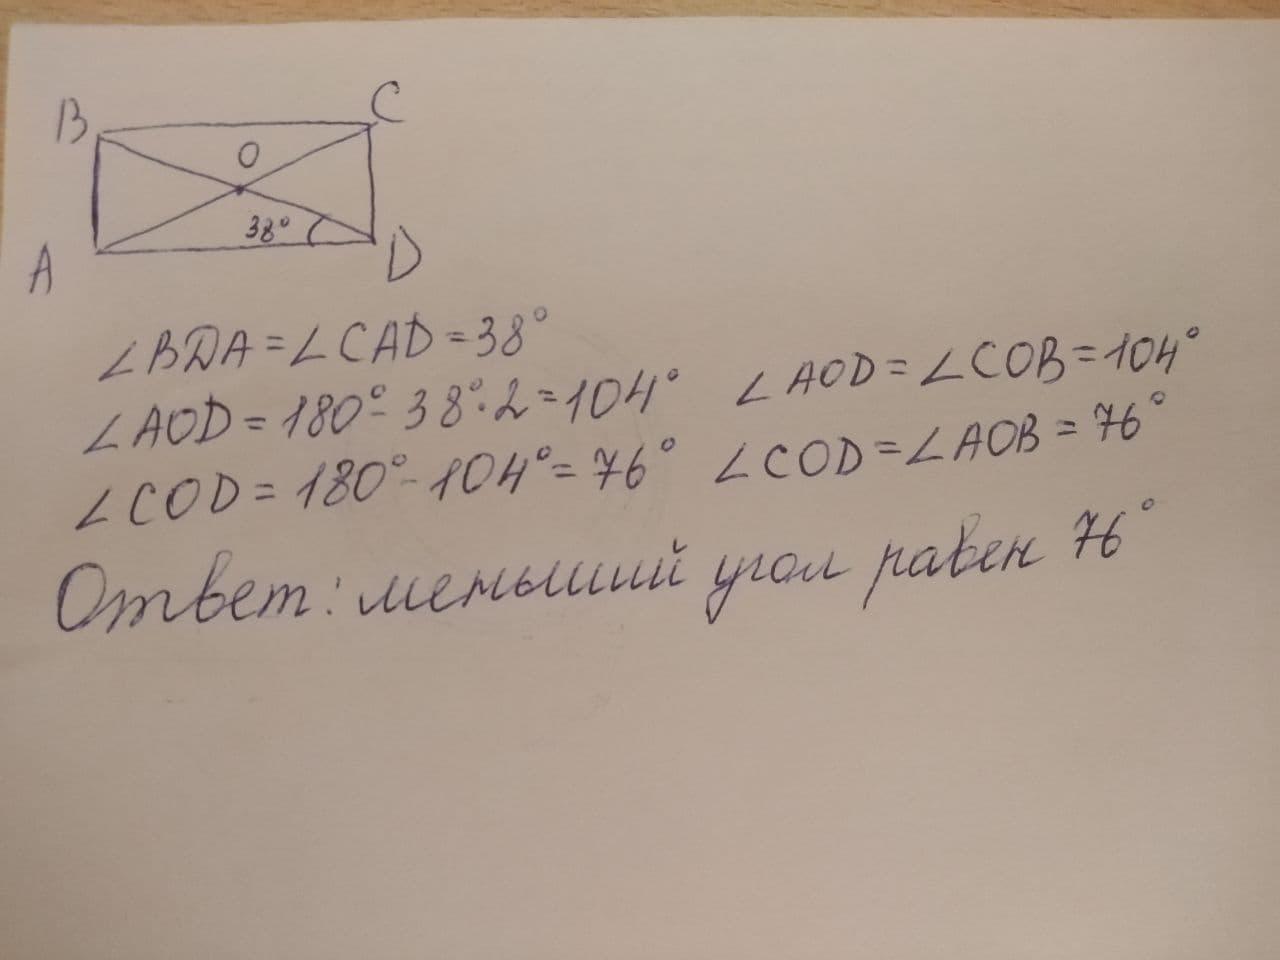 B
C
O
38°
A
D
∠BDA=∠CAD=38°
∠AOD=180°-38°·2=104° ∠AOD=∠COB=104°
∠COD=180°-104°=76° ∠COD=∠AOB=76°
Ответ: меньший угол равен 76°